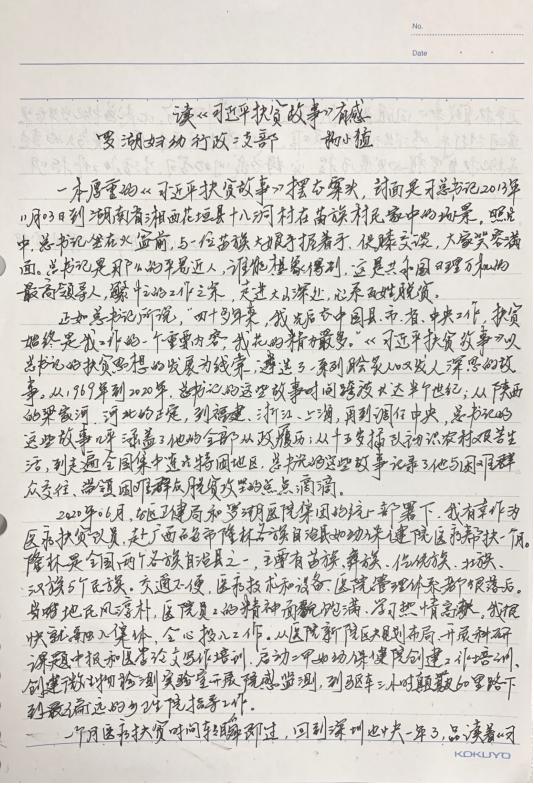 No.
Date
读《习近平扶贫故事》有感
罗湖妇幼行政二支部
一本厚重的《习近平扶贫故事》摆在案头，封面是习总书记2013年
11月03日到湖南省湘西花垣县十八洞村在苗族村民家中的场景，照片
中，总书记坐在火窑前，与一位苗族大娘手握着手，促膝交谈，大家笑容满
面。总书记是那么的平易近人，谁能想象得到，这是共和国日理万机的
最高领导人，繁忙的工作之余，走进大山深处，心系百姓脱贫。
正如总书记所说，“四十多年来，我先后在中国县、市、省、中央工作，扶贫
始终是我工作的一个重要内容，我花的精力最多。”《习近平扶贫故事》以
总书记的扶贫思想的发展为线索，遴选了一系列脍炙人口发人深思的故
事。从1969年到2020年，总书记的这些故事时间跨度长达半个世纪；从陕西
的梁家河，河北的正定，到福建、浙江、上海，再到调任中央，总书记的
这些故事几乎涵盖了他的全部从政履历；从十五岁插队初识农村艰苦生
活，到走遍全国集中连片特困地区，总书记的这些故事记录了他与困难群
众交往，带领困难群众脱贫攻坚的点点滴滴。
2020年06月，在区卫健局和罗湖医院集团的统一部署下，我有幸作为
医疗扶贫队员，赴广西百色市隆林各族自治县妇幼保健院医疗帮扶一个月。
隆林是全国两个各族自治县之一，主要有苗族、彝族、仡佬族、壮族、
汉族5个民族。交通不便，医疗技术和设备、医院管理体系都很落后。
当地民风淳朴，医院员工的精神面貌饱满，学习热情高涨。我很
快就融入集体，全心投入工作。从医院新院区规划布局、开展科研
课题申报和医学论文写作培训、启动二甲妇幼保健院创建工作培训、
创建微生物检测实验室开展院感监测，到驱车三小时颠颠60里路下
到最偏远的乡卫生院指导工作。
一个月医疗扶贫时间转瞬即过，回到深圳也快一年了，品读着《习
KOKUYO